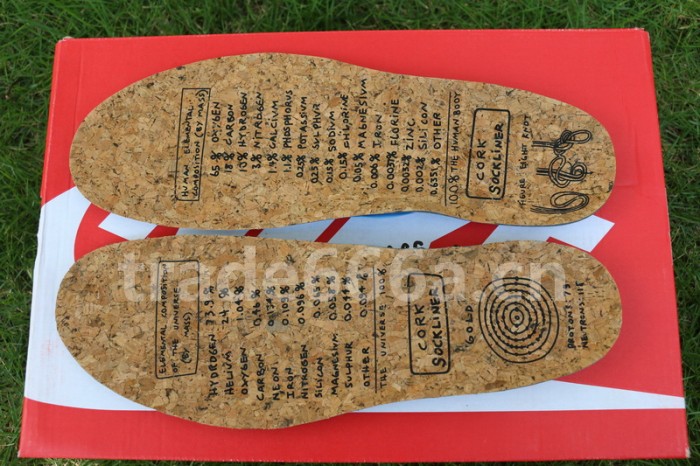 HUMAN ELEMENTAL
COMPOSITION (BY MASS)
65% OXYGEN
18% CARBON
10% HYDROGEN
3% NITROGEN
CALCIUM
1.1% PHOSPHORUS
0.25% POTASSIUM
0.25% SULPHUR
0.15% SODIUM
0.15% CHLORINE
0.05% MAGNESIUM
0.006% IRON
0.0037% FLORINE
0.0032% ZINC
0.002% SILICON
0.6351% OTHER
100% THE HUMAN BODY
CORK
SOCKLINER
FIGURE EIGHT KNOT
ELEMENTAL COMPOSITION
OF THE UNIVERSE
(BY MASS)
HYDROGEN 73.9%
HELIUM 24%
OXYGEN 1.04%
CARBON 0.46%
NEON
IRON 0.109%
NITROGEN 0.096%
SILICON 0.065%
MAGNESIUM 0.058%
SULPHUR 0.044%
OTHER
THE UNIVERSE 100%
CORK
SOCKLINER
GOLD
PROTONS:79
NEUTRONS:118